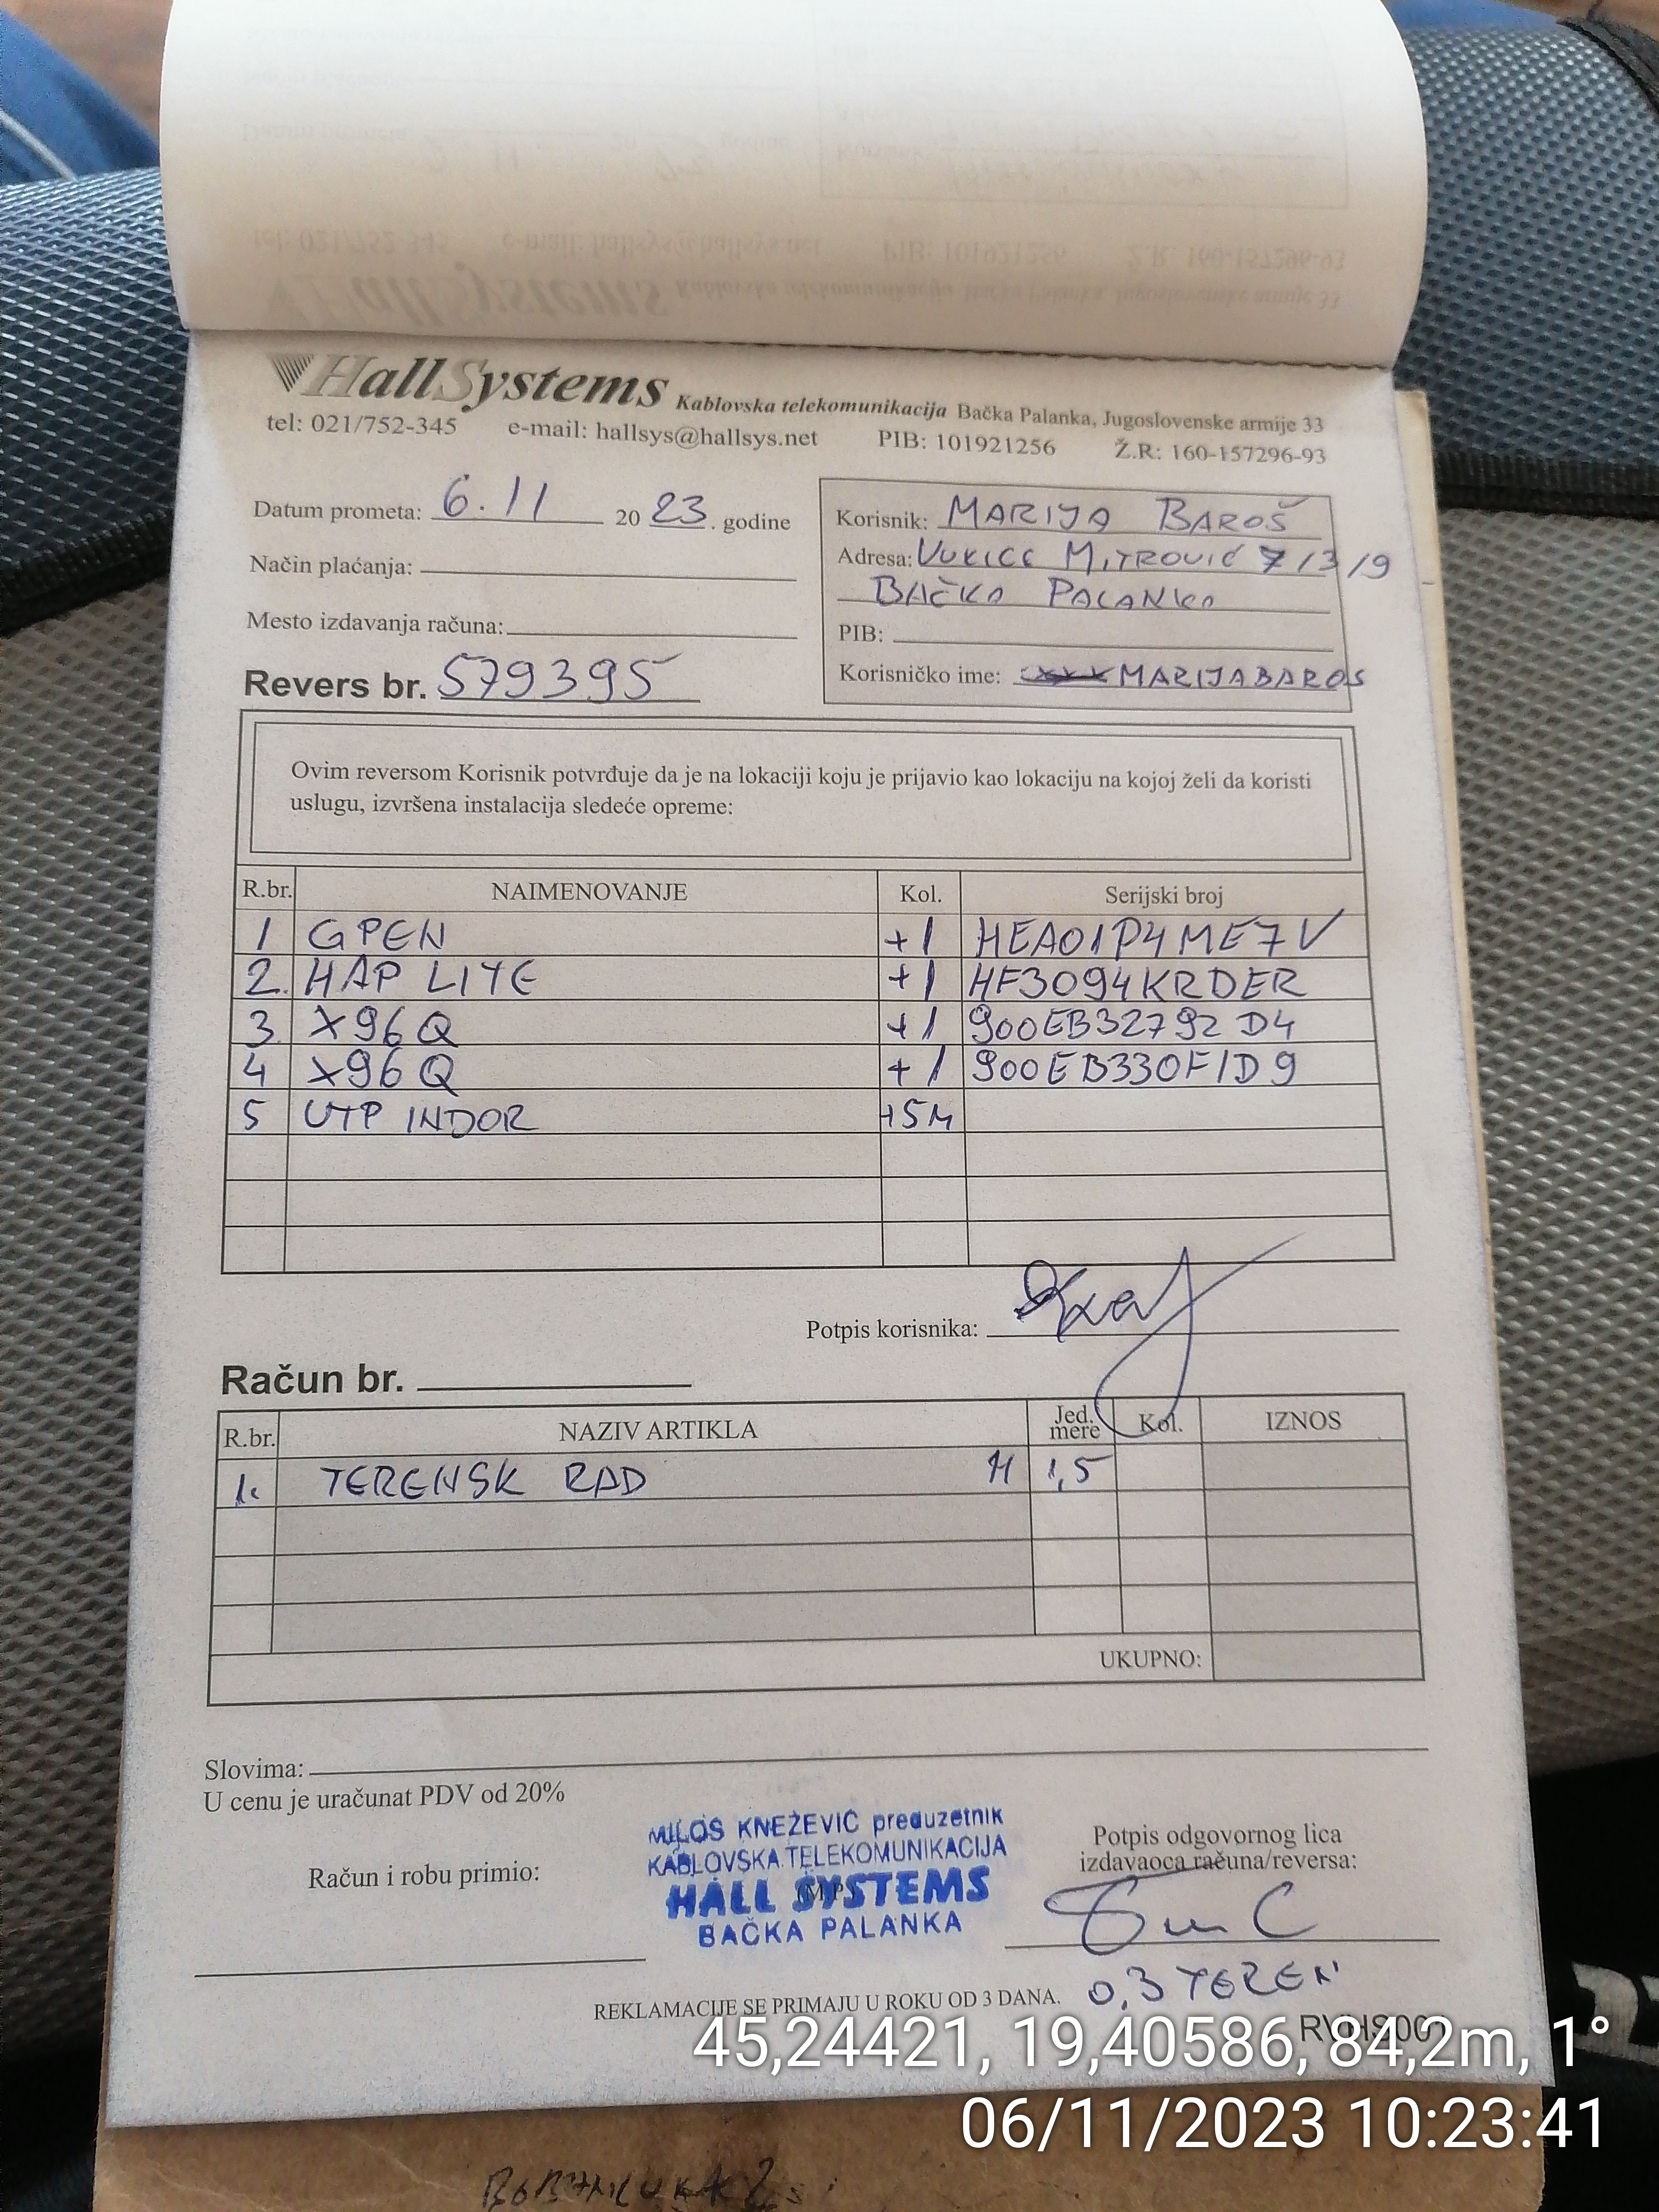 HallSystems Kablovska telekomunikacija Bačka Palanka, Jugoslovenske armije 33
tel: 021/752-345 e-mail: hallsys@hallsys.net PIB: 101921256 Ž.R: 160-157296-93
Datum prometa: 6.11 20 23. godine
Način plaćanja:
Mesto izdavanja računa:
Revers br. 579395
Korisnik: MARIJA BAROŠ
Adresa: VUKICE MITROVIĆ 7/3/9
BAČKA PALANKA
PIB:
Korisničko ime: MARIJABAROS
Ovim reversom Korisnik potvrđuje da je na lokaciji koju je prijavio kao lokaciju na kojoj želi da koristi
uslugu, izvršena instalacija sledeće opreme:
R.br. NAIMENOVANJE Kol. Serijski broj
1 GPEN +1 HEA01P4ME7V
2. HAP LITE +1 HF3094KRDER
3 X96Q +1 900EB32792D4
4 X96Q +1 900EB330F1D9
5 UTP INDOR +5M
Potpis korisnika:
Račun br.
R.br. NAZIV ARTIKLA Jed. mere Kol. IZNOS
1. TERENSK RAD H 1,5
UKUPNO:
Slovima:
U cenu je uračunat PDV od 20%
Račun i robu primio:
MILOŠ KNEŽEVIĆ preduzetnik
KABLOVSKA TELEKOMUNIKACIJA
HALL SYSTEMS
BAČKA PALANKA
Potpis odgovornog lica
izdavaoca računa/reversa:
REKLAMACIJE SE PRIMAJU U ROKU OD 3 DANA.
0,3 TEREN
45,24421, 19,40586, 84,2m, 1°
06/11/2023 10:23:41